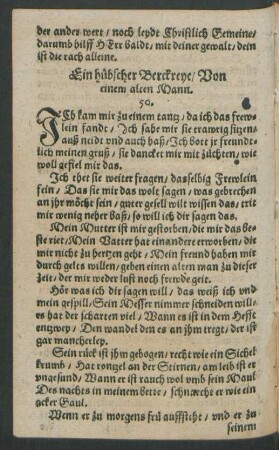 der ander wert / noch leydt Christlich Gemeine /
darumb hilff HErr baldt / mit deiner gewalt / dein
ist die rach alleine.
Ein hübscher Berckreye / Von
einem alten Mann.
50.
ICh kam mir zu einem tantz / da ich das frew-
lein fandt / Ich sahe mir sie trawrig sitzen /
auß neidt vnd auch haß / Ich bott jr freundt-
lich meinen gruß / sie dancket mir mit züchten / wie
wol gefiel mir das.
Ich thet sie weiter fragen / dasselbig Frewlein
fein / Das sie mir das wolt sagen / was gebrechen
an jhr möcht sein / guter gesell wilt wissen das / trit
mir wenig neher baß / so will ich dir sagen das.
Mein Mutter ist mir gestorben / die mir das be-
ste riet / Mein Vatter hat ein andere erworben / die
mir nicht zu hertzen geht / Mein freund haben mir
durch gelts willen / geben einen alten man zu dieser
zeit / der mir weder lust noch frewde geit.
Hör was ich dir sagen will / das weiß ich vnd
mein gespill / Sein Messer nimmer schneiden will /
es hat der scharten viel / Wann es ist in dem Hefft
entzwey / Den wandel den es an jhm tregt / der ist
gar mancherley.
Sein rück ist jhm gebogen / recht wie ein Sichel
krumb / Hat rontzel an der Stirnen / am leib ist er
vngesund / Wann er ist rauch wol vmb sein Maul
Des nachts in meinem bette / schnarcht er wie ein
acker Gaul.
Wenn er zu morgens frü auffsteht / vnd er zu
seinem